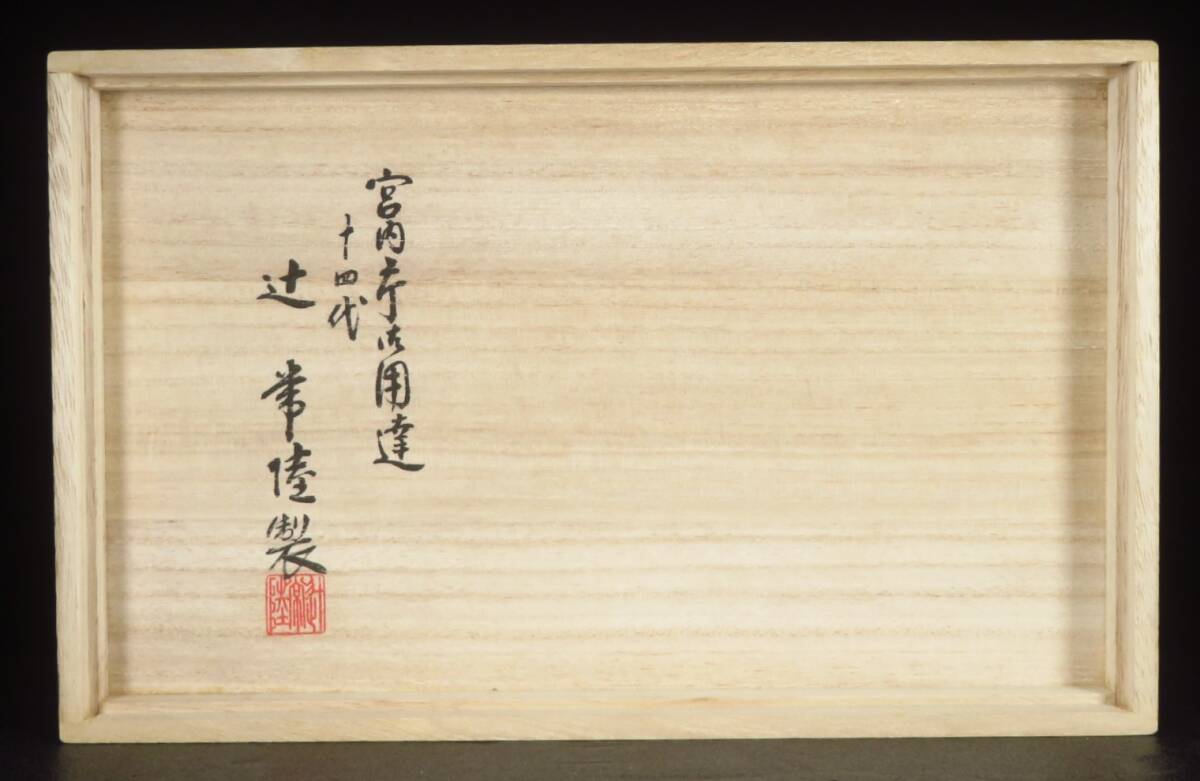 宮内庁御用達
十四代
辻 常陸製
辻常陸